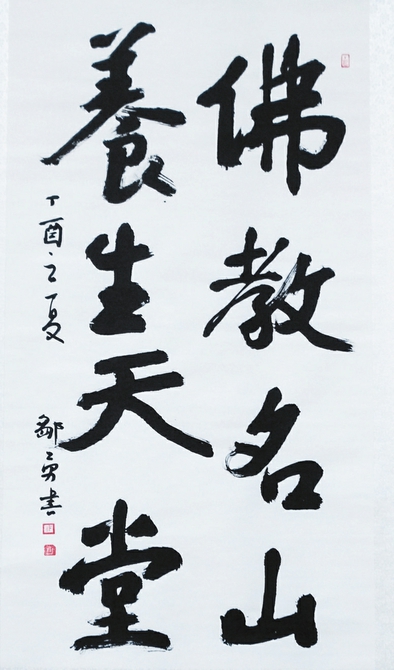 佛教名山
養生天堂
丁酉之夏
鄒勇書